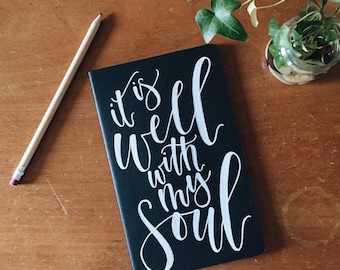 it is
well
with
my
soul